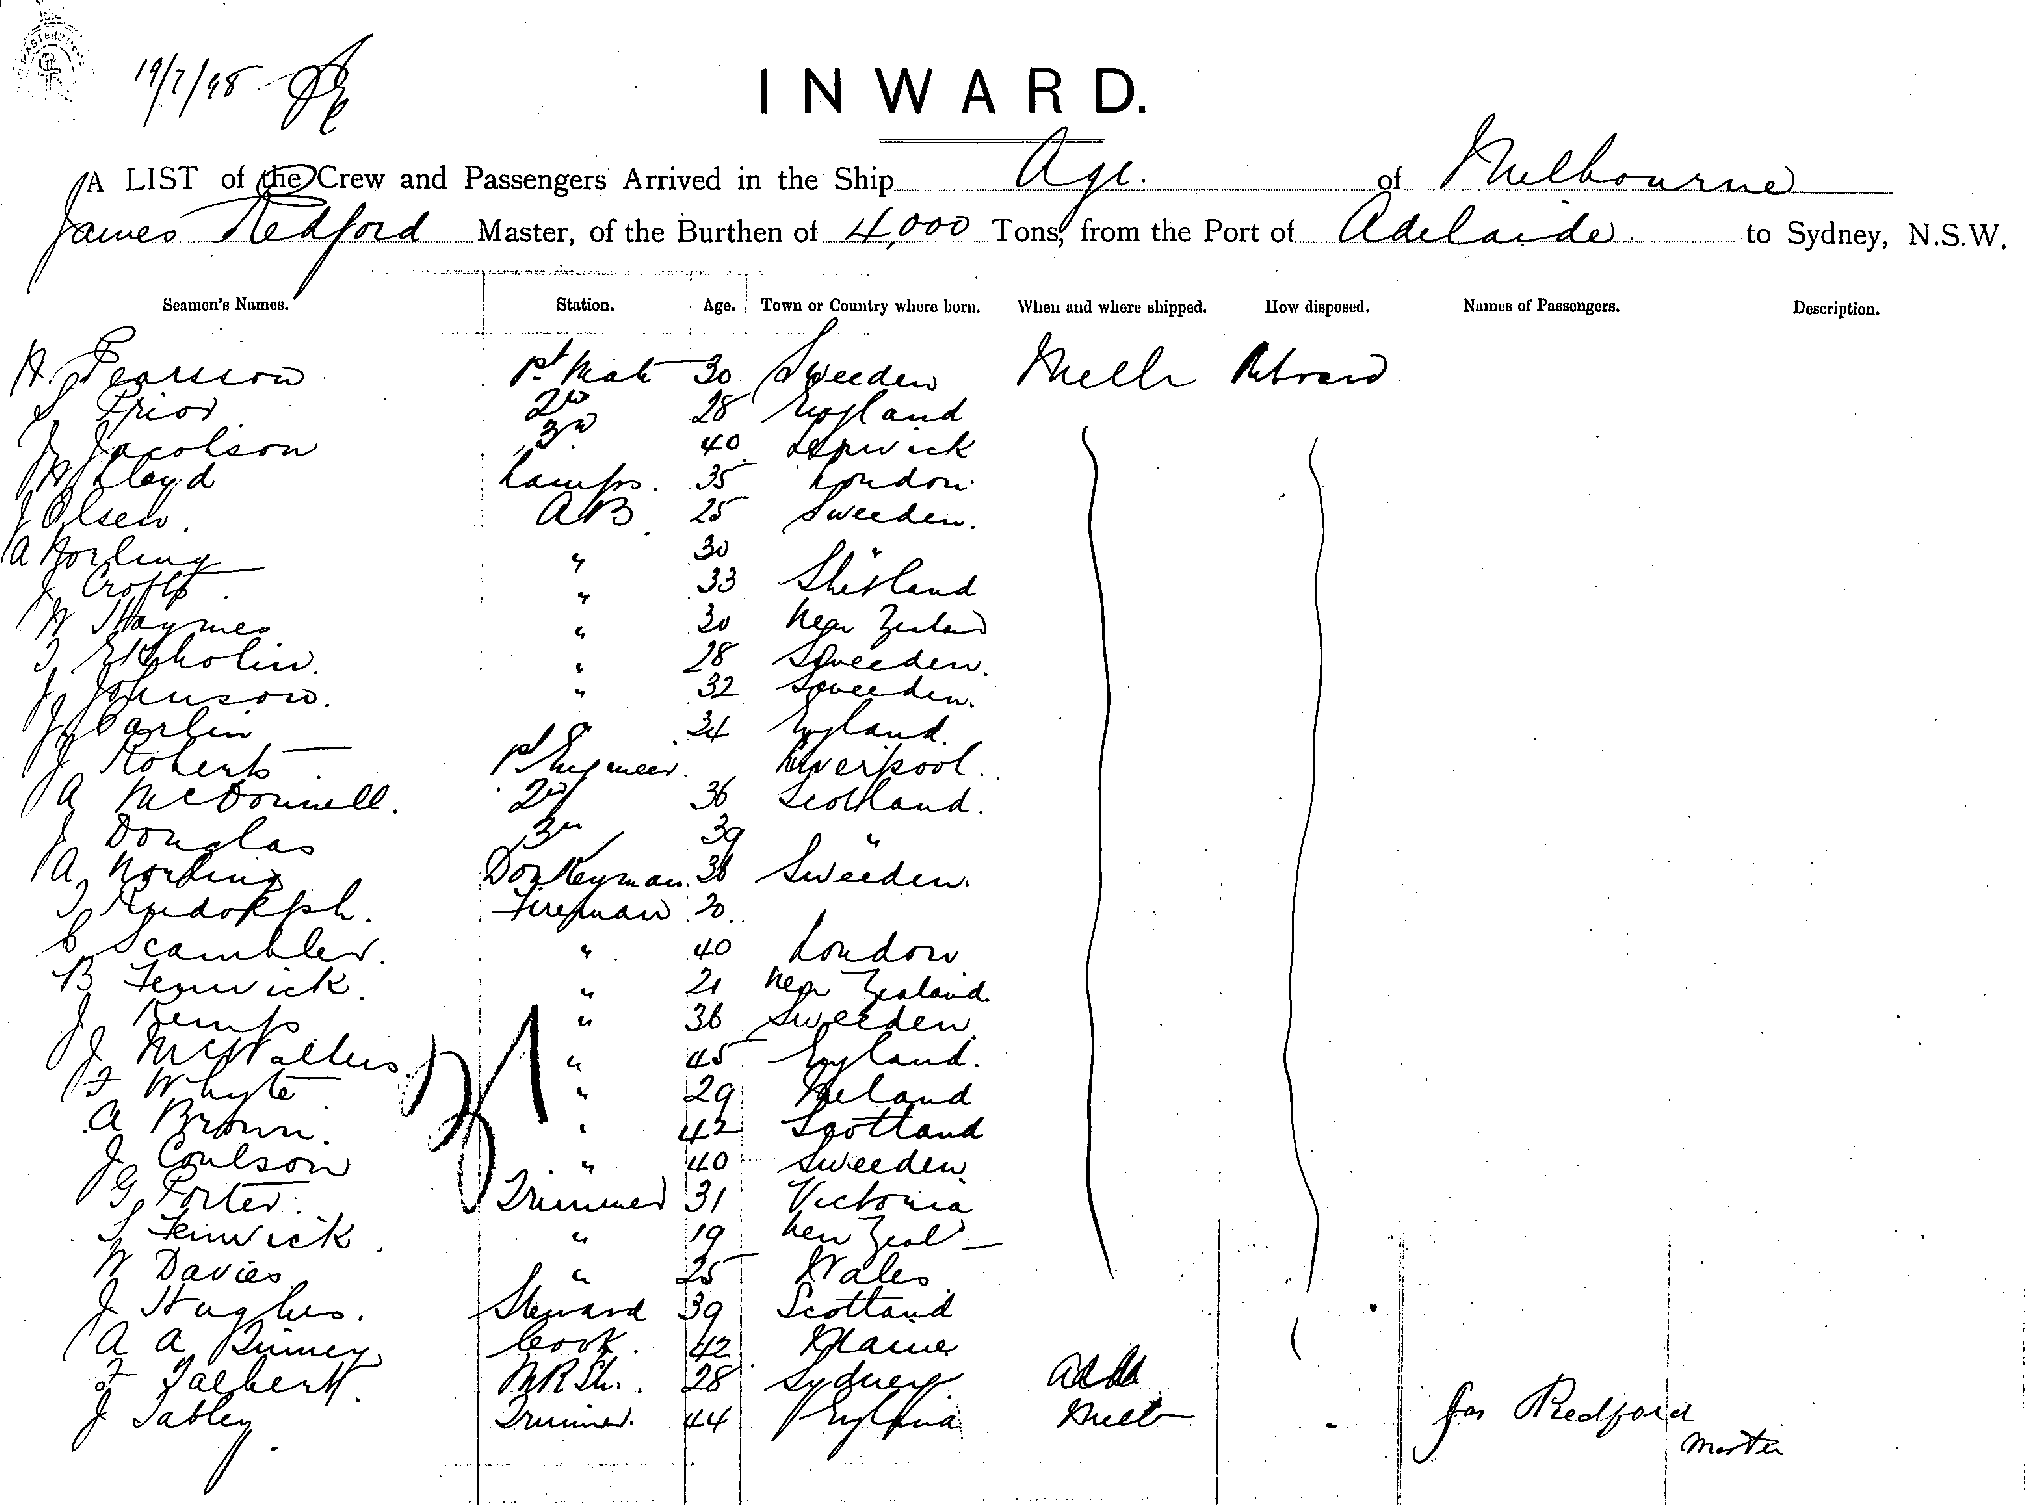 19/7/98
INWARD.
A LIST of the Crew and Passengers Arrived in the Ship Age. of Melbourne
James Redford Master, of the Burthen of 4,000 Tons, from the Port of Adelaide. to Sydney, N.S.W.
Seamen's Names. Station. Age. Town or Country where born. When and where shipped. How disposed. Names of Passengers. Description.
H Pearsson 1st Mate 30 Sweeden Melb
S Prior 2nd 28 England
J Jacobson 3rd 40 Lerwick
W Lloyd Lamps. 35 London.
J Olsen. AB 25 Sweeden.
A Norling " 30 "
J Croft. " 33 Shetland
W Haymes " 30 New Zealand
" 28 Sweeden.
J Johnson. " 32 Sweeden.
J Carlin 34 England.
J Roberts 1st Engineer. Liverpool.
A McDonnell. 2nd 36 Scotland.
J Douglas 3rd 39 "
A Nording Donkeyman. 38 Sweeden.
Rudolph. Fireman 20.
C Scambler. " 40 London
B Fenwick. " 21 New Zealand.
J Kemp " 36 Sweeden.
J McWalters " 45 England.
F Whyte " 29 Ireland
A Brown. " 42 Scotland
J Coulson " 40 Sweeden.
G Porter. Trimmer 31 Victoria
S Fenwick. " 19 New Zeal
W Davies " 25 Wales
J Hughes. Steward 39 Scotland
A A Binney Cook. 42 Maine
F Talbert. M R St. 28 Sydney.
J Tabley Trimmer. 44 England Melb
Jas Redford
Master